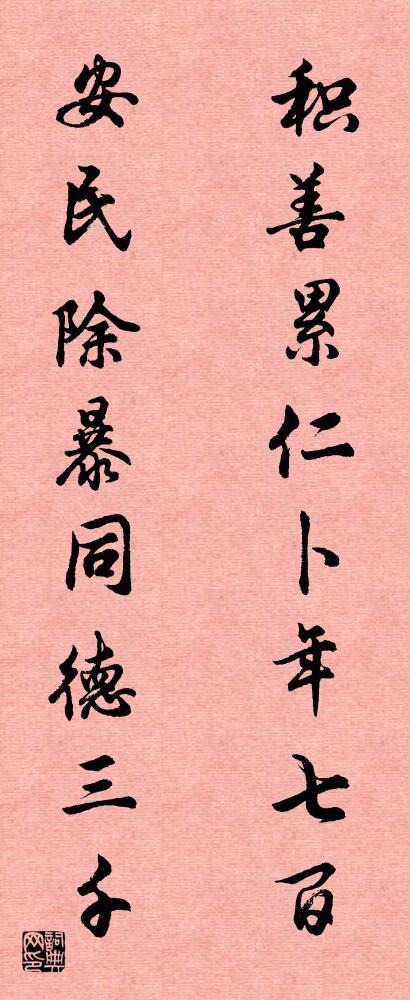 积善累仁卜年七百
安民除暴同德三千
詞典网印